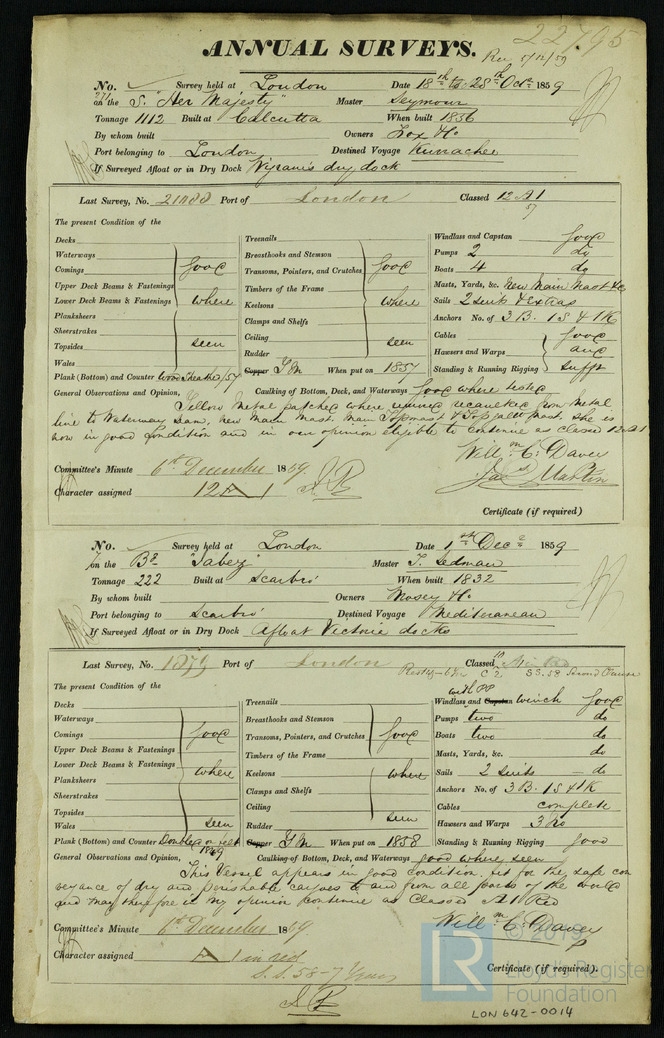 22795
ANNUAL SURVEYS.
Rec 5/12/59
No. Survey held at London Date 18th to 28th Octr 1859
on the S. "Her Majesty" Master Seymour
Tonnage 1112 Built at Calcutta When built 1856
By whom built Owners Fox & Co
Port belonging to London Destined Voyage Kurrachee
If Surveyed Afloat or in Dry Dock Wigrams dry dock
Last Survey, No. Port of London Classed 12 A 1
57
The present Condition of the
Decks
Waterways
Comings good
Upper Deck Beams & Fastenings
Lower Deck Beams & Fastenings where
Planksheers
Sheerstrakes
Topsides seen
Wales
Plank (Bottom) and Counter Wood Sheathed/57
Treenails
Breasthooks and Stemson
Transoms, Pointers, and Crutches good
Timbers of the Frame
Keelsons where
Clamps and Shelfs
Ceiling seen
Rudder
Copper YM When put on 1857
Windlass and Capstan good
Pumps 2 do
Boats 4 do
Masts, Yards, &c. New Main Mast &c
Sails 2 suits & extras
Anchors No. of 3 B. 1 S & 1 K
Cables good
Hawsers and Warps and
Standing & Running Rigging sufft
General Observations and Opinion, Caulking of Bottom, Deck, and Waterways good where tested
Yellow Metal patched where required recaulked from metal
line to Waterway seam, new main mast, main Topmast & Topgallt mast. She is
now in good condition and in our opinion eligible to continue as classed 12 A 1
Willm C. Davey
Jas Martin
Committee's Minute 6th December 1859
Character assigned 12 A 1
Certificate (if required)
No. Survey held at London Date 1st Decr 1859
on the Bk "Jabez" Master T. Sedman
Tonnage 222 Built at Scarbro' When built 1832
By whom built Owners Mosey & Co
Port belonging to Scarbro' Destined Voyage Mediterranean
If Surveyed Afloat or in Dry Dock Afloat Victoria docks
Last Survey, No. 1879 Port of London Classed A 1 in Red
The present Condition of the
Decks
Waterways
Comings good
Upper Deck Beams & Fastenings
Lower Deck Beams & Fastenings where
Planksheers
Sheerstrakes
Topsides
Wales seen
Plank (Bottom) and Counter Doubled on felt
Treenails
Breasthooks and Stemson
Transoms, Pointers, and Crutches good
Timbers of the Frame
Keelsons where
Clamps and Shelfs
Ceiling
Rudder seen
Copper YM When put on 1858
Windlass and Capstan with PP winch good
Pumps two do
Boats two do
Masts, Yards, &c. do
Sails 2 suits do
Anchors No. of 3 B. 1 S & 1 K
Cables complete
Hawsers and Warps 3 No
Standing & Running Rigging good
General Observations and Opinion, Caulking of Bottom, Deck, and Waterways good where seen
This Vessel appears in good condition fit for the safe con
veyance of dry and perishable cargoes to and from all parts of the world
and may therefore in my opinion continue as Classed A 1 Red
Willm C. Davey
Committee's Minute 6th December 1859
Character assigned A 1 in red
S.S. 58-7 Years
Certificate (if required).
LR © 2019
Lloyd's Register
Foundation
LON 642-0014